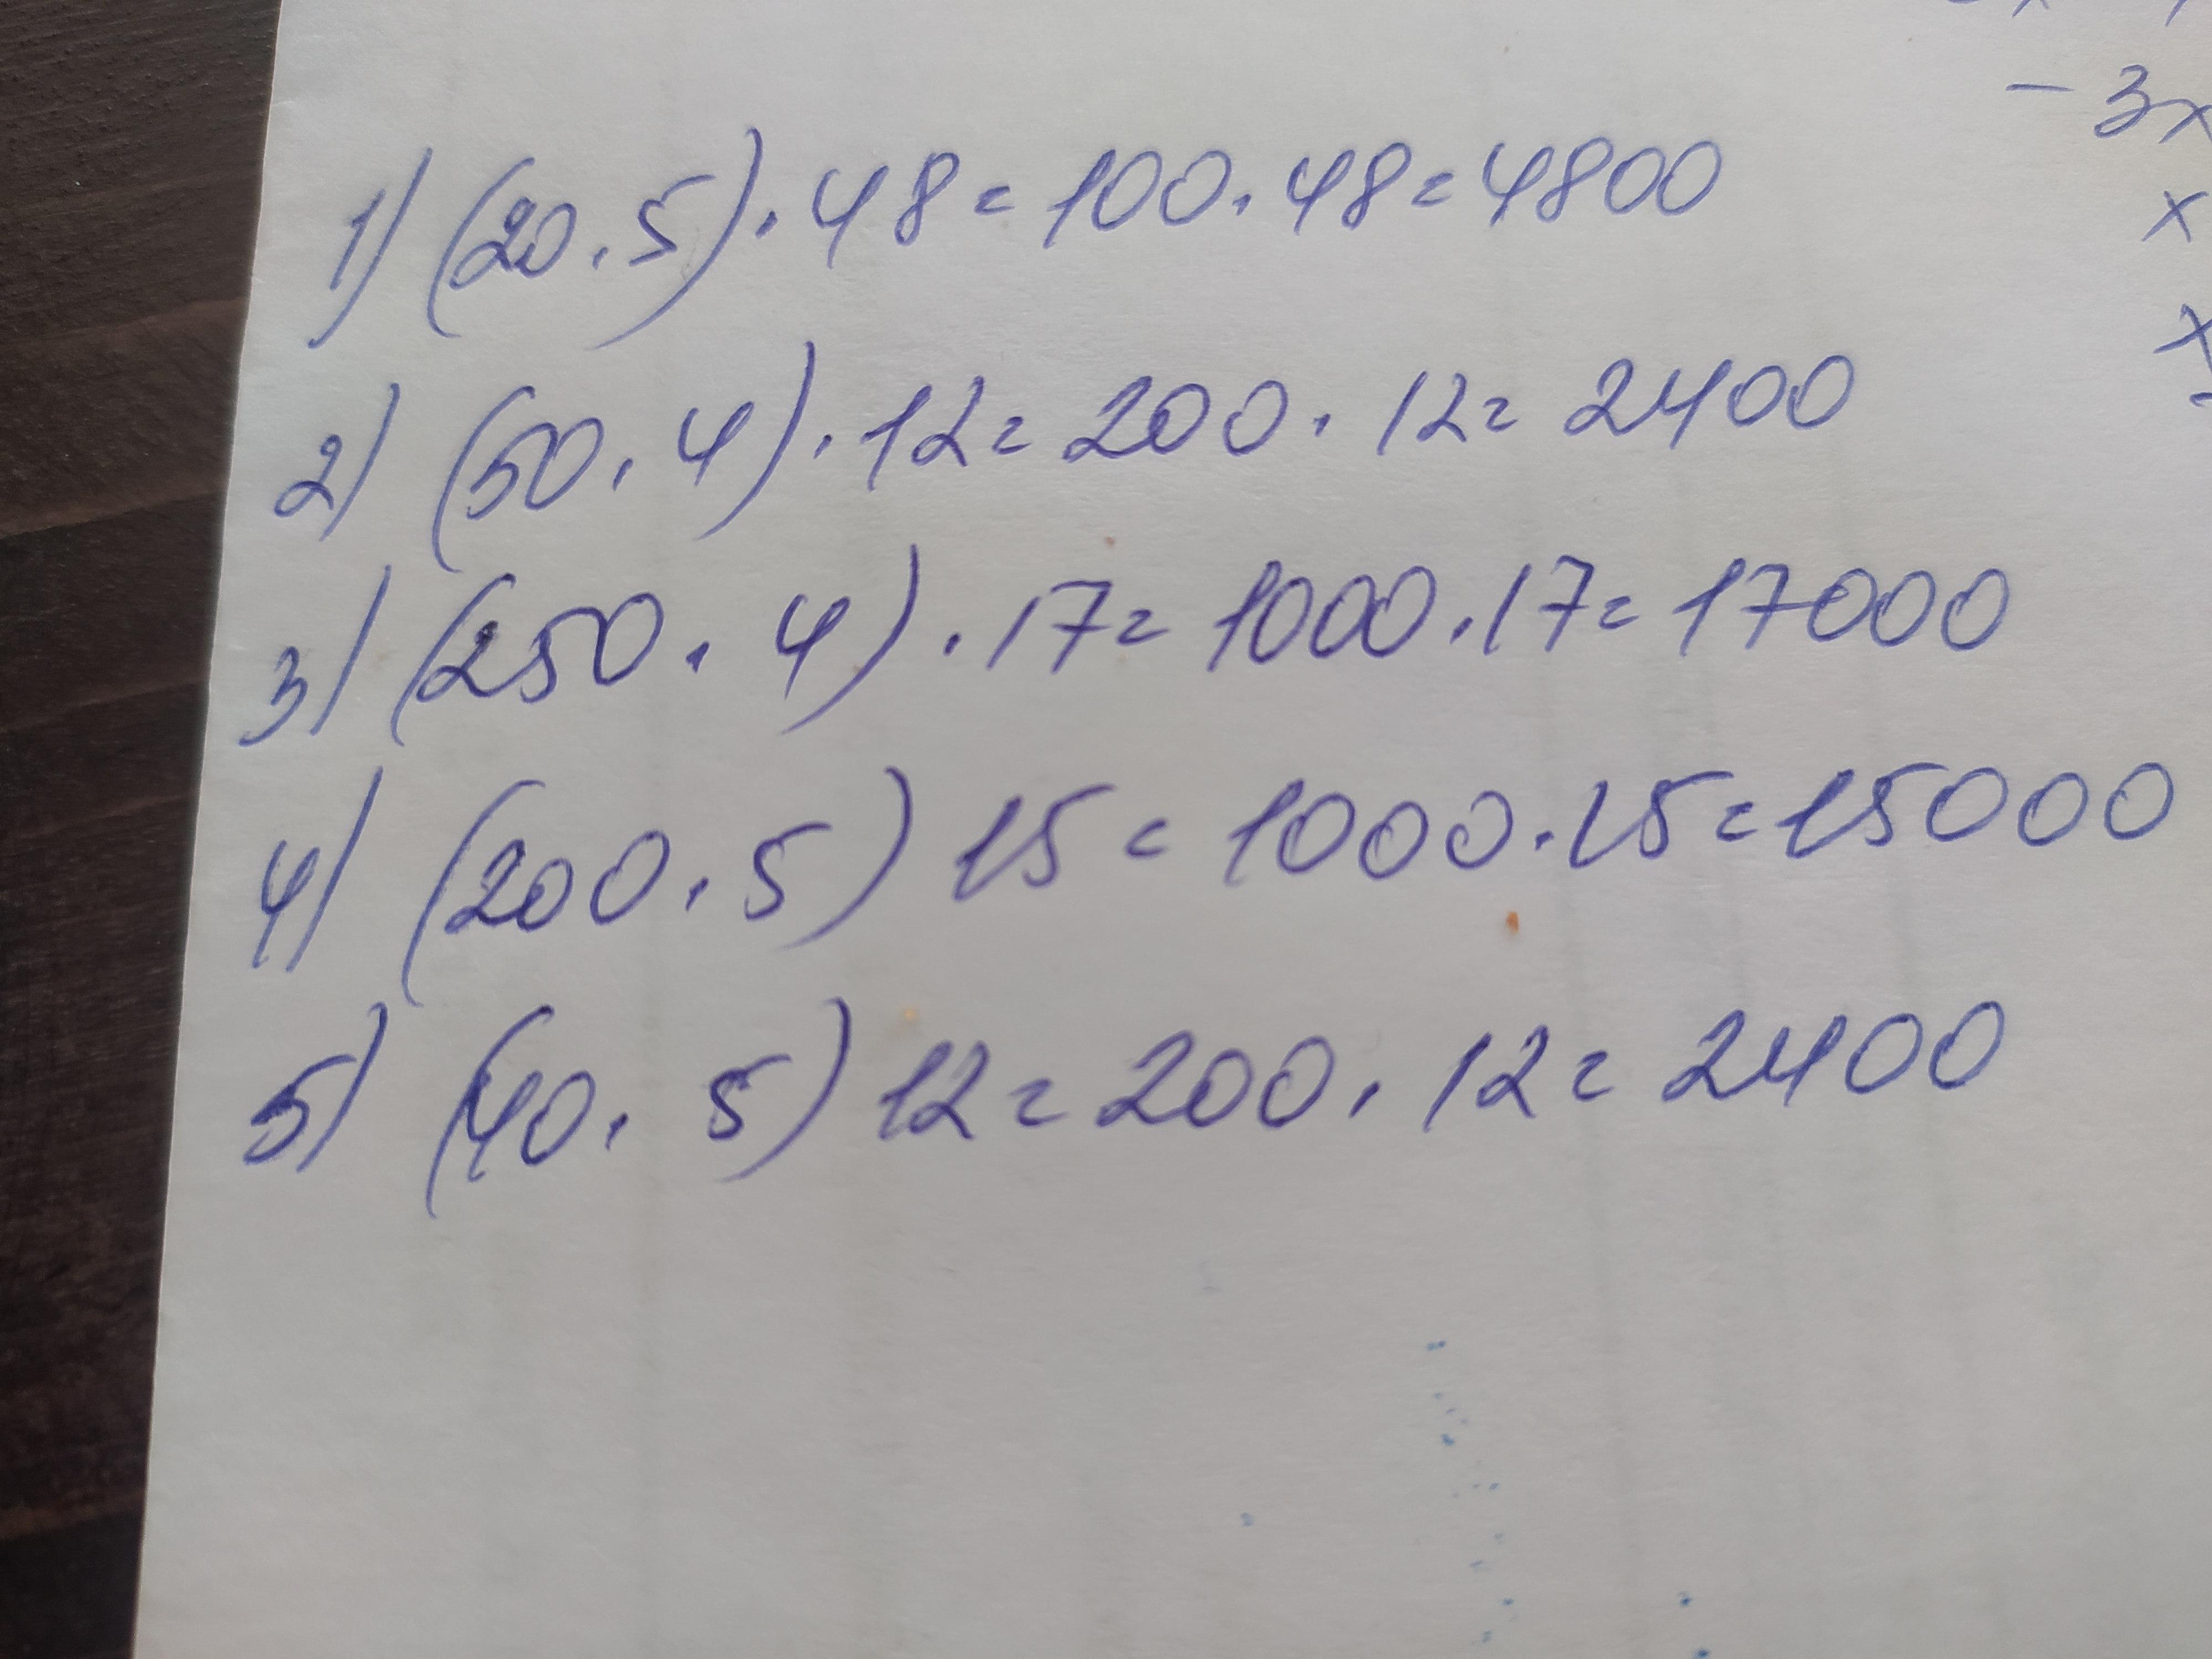 1) (20 . 5) . 48 = 100 . 48 = 4800
2) (50 . 4) . 12 = 200 . 12 = 2400
3) (250 . 4) . 17 = 1000 . 17 = 17000
4) (200 . 5) 15 = 1000 . 15 = 15000
5) (40 . 5) 12 = 200 . 12 = 2400
- 3x
x
x